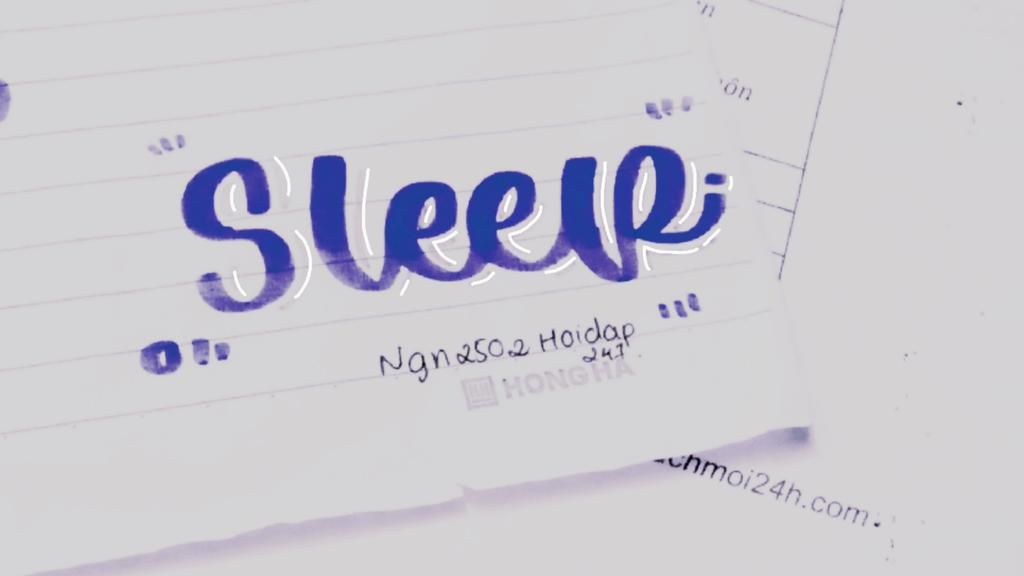 ôn
Sleep
Ngn2502 Hoidap
247
HONG HA
chmoi24h.com